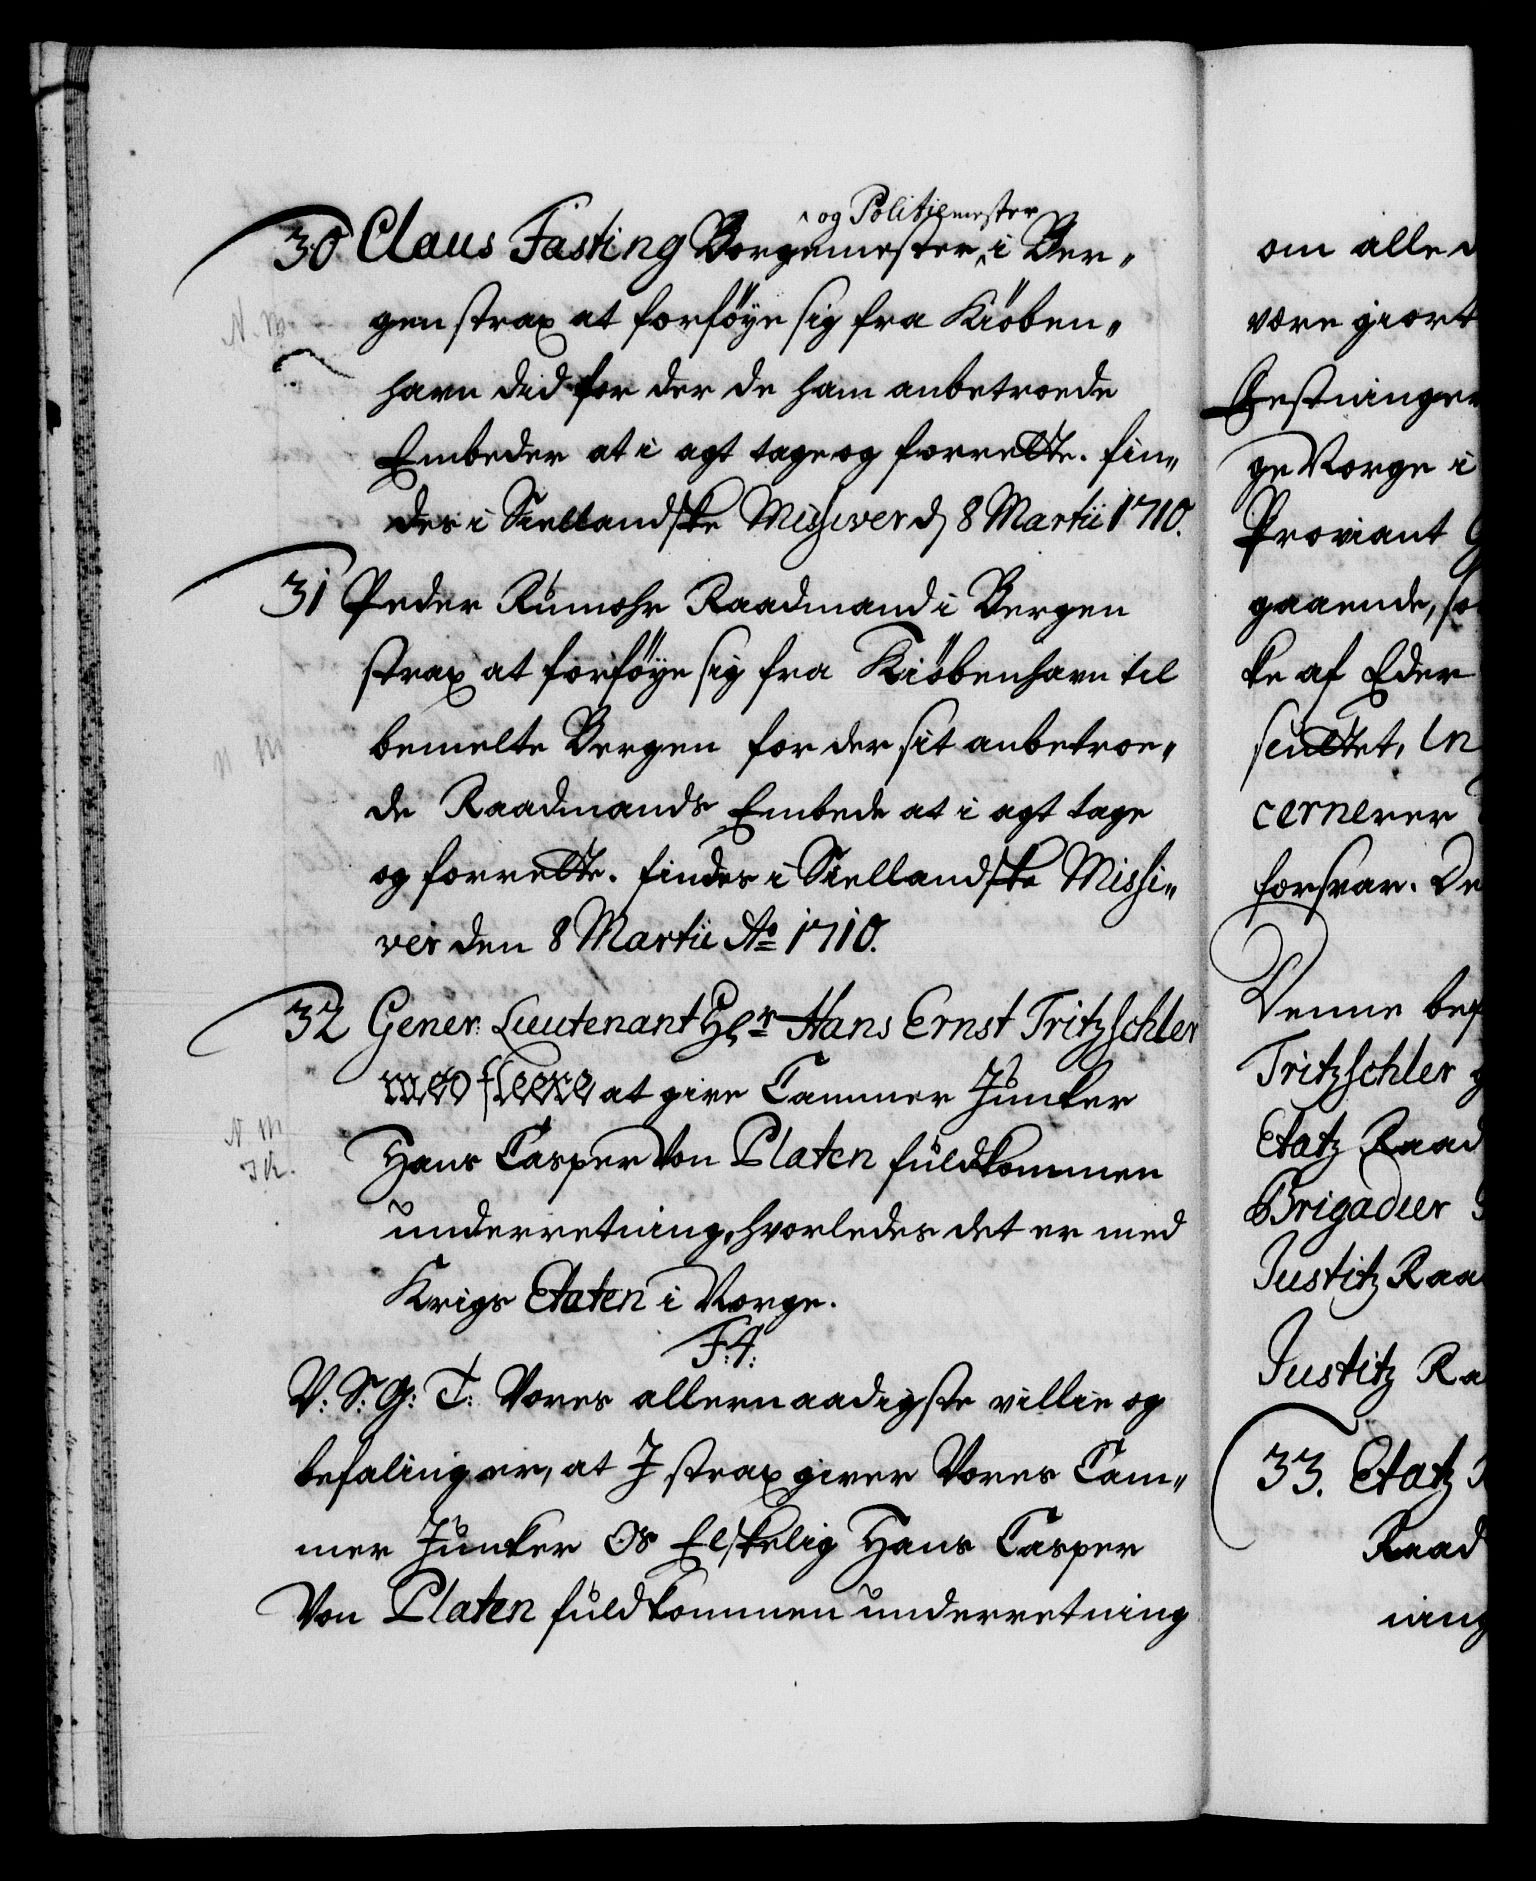 30. Claus Fasting Borgemester, ^og Politiemester i Ber„
gen strax at forföye sig fra Kiöben„
havn did for der de ham anbetroede
Embeder at i agt tage og forrette. fin„
des i Siellandske Missiver d 8 Martii 1710.
31 Peder Rumohr Raadmand i Bergen
strax at forföye sig fra Kiöbenhavn til
bemelte Bergen for der sit anbetroe„
de Raadmands Embede at i agt tage
og forrette. findes i Siellandske Missi„
ver den 8 Martii Ao 1710.
N. M.
N M
32 Gener: Lieutenant Hr Hans Ernst Tritzschler
med fleere at give Cammer Junker
Hans Casper Von Platen fuldkommen
underretning, hvorledes det er med
Krigs Etaten i Norge.
N M
F: 4:
V: S: G: T: Vores allernaadigste villie og
befaling er, at I strax giver Vores Cam„
mer Junker Os Elskelig Hans Casper
Von Platen fuldkommen underretning
om alle
være giort
Festninger
ge Norge i
Proviant
gaaende, so
ke af Eder
senttet, In
cernerer
forsvar. De
Denne bef
Tritzschler
Etatz Raad
Brigadier
Justitz Raa
Justitz Ra
33. Etatz
Raad
ning